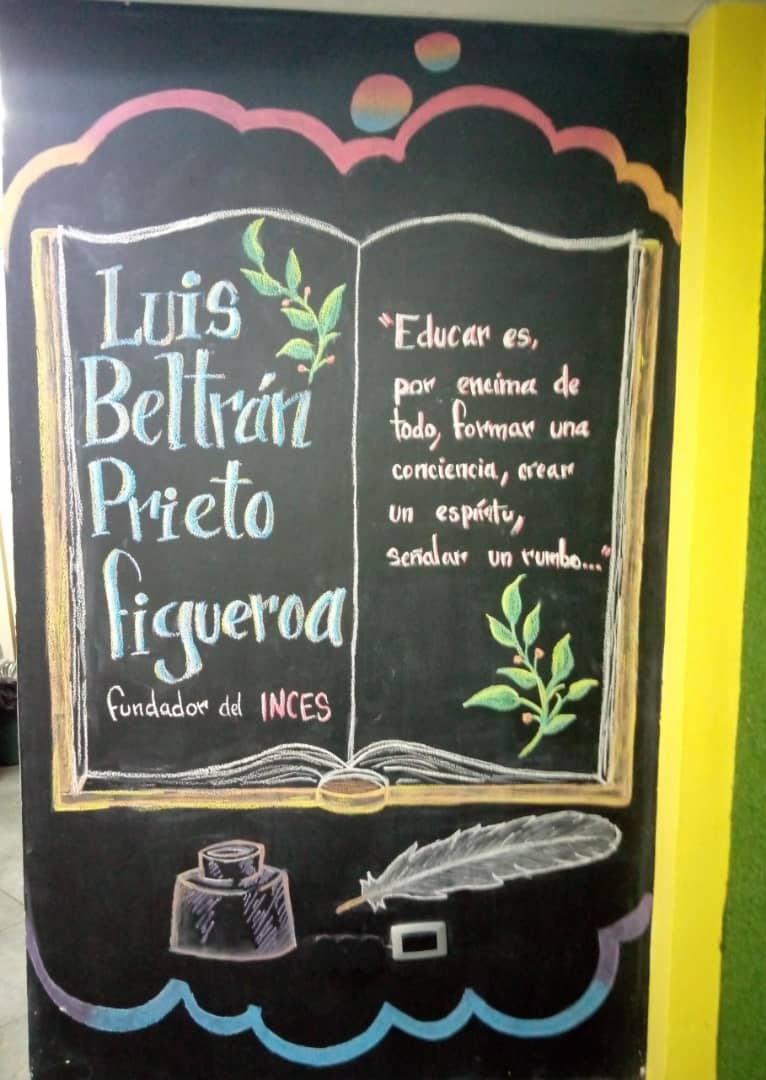 Luis
Beltrán
Prieto
figueroa
fundador del INCES
"Educar es,
por encima de
todo, formar una
conciencia, crear
un espíritu,
señalar un rumbo..."